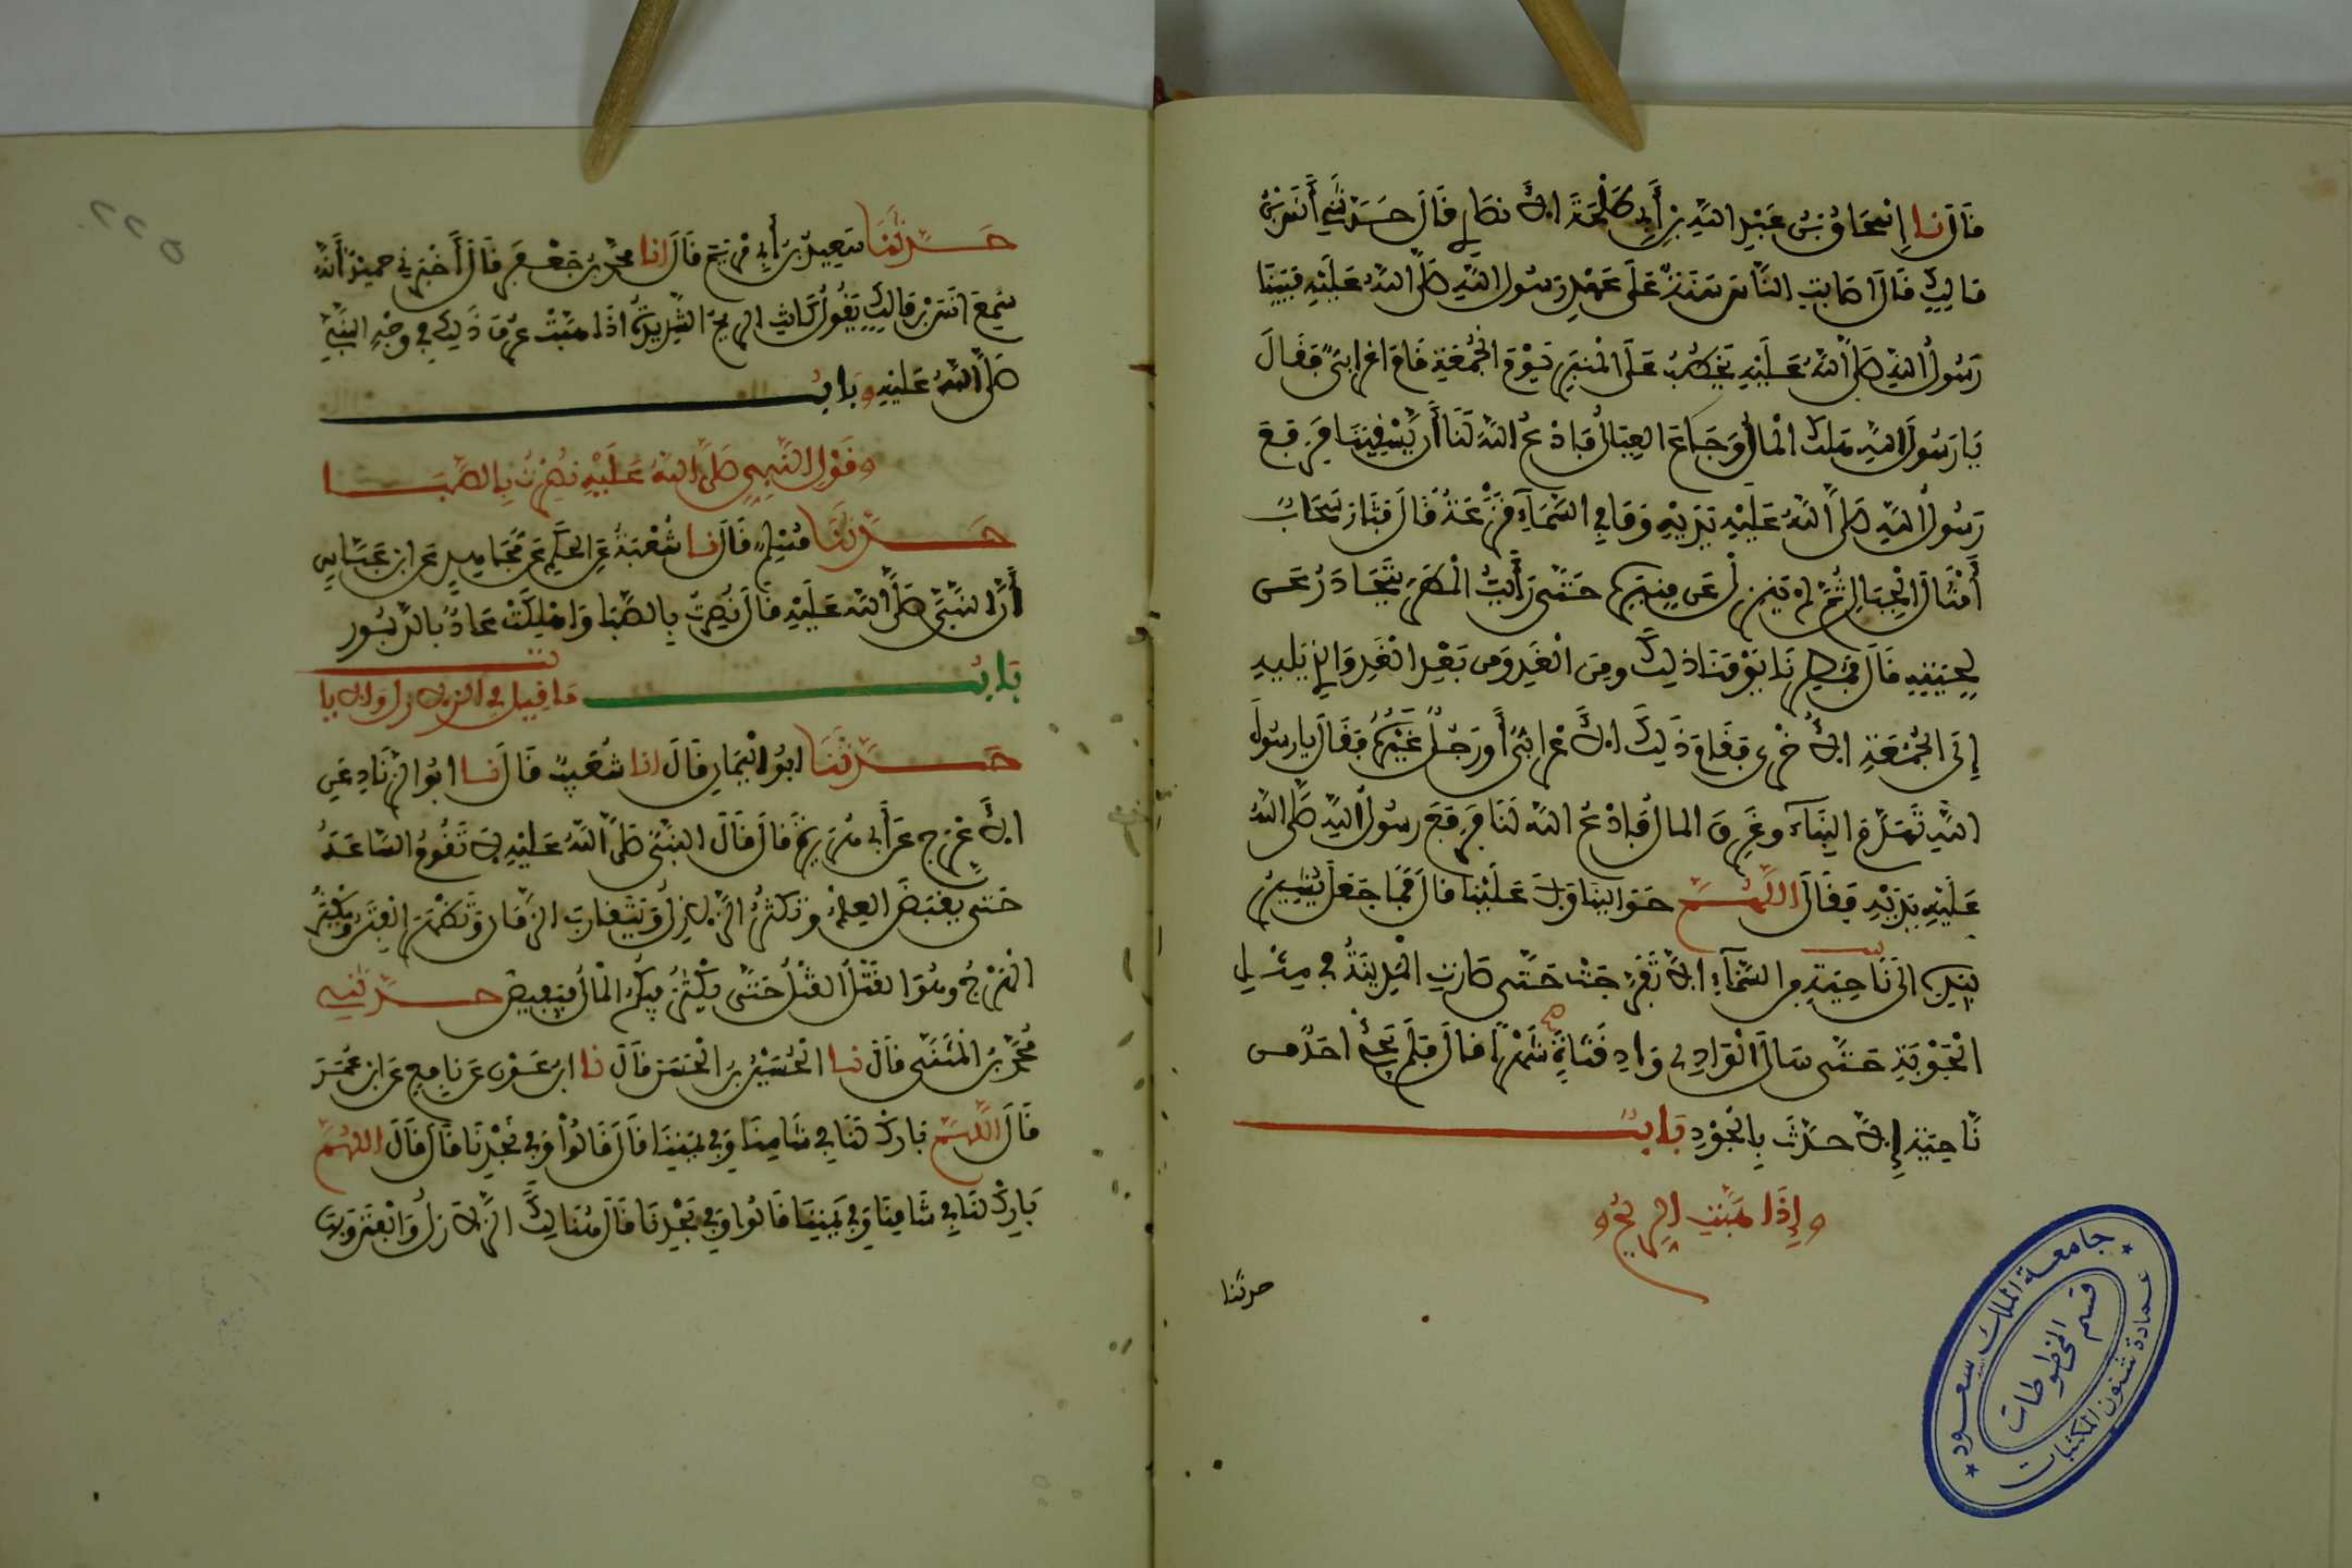 قَالَ نا إِسْحَاقُ بْنُ عَبْدِ اللَّهِ بْنِ أَبِي طَلْحَةَ الأَنصَارِي قَالَ حَدَّثَنِي أَنَسُ بْنُ
مَالِكٍ قَالَ اصَابَتِ النَّاسَ سَنَةٌ عَلَى عَهْدِ رَسُولِ اللَّهِ صَلَّى اللَّهُ عَلَيْهِ فَبَيْنَا
رَسُولُ اللَّهِ صَلَّى اللَّهُ عَلَيْهِ يَخْطُبُ عَلَى الْمِنْبَرِ يَوْمَ الْجُمُعَةِ قَامَ اعْرَابِيٌّ فَقَالَ
يَا رَسُولَ اللَّهِ هَلَكَ الْمَالُ وَجَاعَ الْعِيَالُ فَادْعُ اللَّهَ لَنَا أَن يَّسْقِيَنَا فَرَفَعَ
رَسُولُ اللَّهِ صَلَّى اللَّهُ عَلَيْهِ يَدَيْهِ وَمَا فِي السَّمَآءِ قَزَعَةٌ قَالَ فَثَارَ سَحَابٌ
أَمْثَالُ الْجِبَالِ ثُمَّ لَمْ يَنْزِلْ عَن مِنبَرِهِ حَتَّى رَأَيْتُ الْمَطَرَ يَتَحَادَرُ عَن
لِحْيَتِهِ قَالَ فَمُطِرْنَا يَوْمَنَا ذَلِكَ ومِنَ الْغَدِ وَمِن بَعْدِ الْغَدِ وَالذِي يَلِيهِ
إِلَى الْجُمُعَةِ الأُخْرَى فَقَامَ ذَلِكَ الأَعْرَابِيُّ أَورَجُلٌ غَيْرُهُ فَقَالَ يا رسُولَ
اللَّهِ تَهَدَّمَ الْبِنَآءُ وغَرِقَ المالُ فَادْعُ اللَّه لَنَا فَرَفَعَ رسُولُ اللَّهِ صَلَّى اللَّهُ
عَلَيْهِ يَدَيْهِ فَقَالَ اللَّهُمَّ حَوَالَيْنَا وَلاَ عَلَيْنَا قالَ فَمَا جَعَلَ يُشِيرُ
بِيَدِهِ الَى نَاحِيَةٍ مِنَ السَّمَآءِ الاَّ تَفَرَّجَتْ حَتَّى صَارَتِ الْمَدِينَةُ في مِثْلِ
الْجَوْبَةِ حَتَّى سَالَ الْوَادِي وَادِي قَنَاةَ شَهْرًا قَالَ فَلَمْ يَجِئْ احَدٌ مِن
نَّاحِيَةٍ إِلاَّ حَدَّثَ بِالْجَوْدِ بَابٌ
إِذَا هَبَّتِ الرِّيحُ
حدثنا
جامعة الملك سعود
قسم المخطوطات
عمادة شئون المكتبات
٢٢٥
حَدَّثَنَا سَعِيدُ بنُ أَبِي مَرْيَمَ قَالَ انا محمَّدُ بنُ جَعْفَرٍ قَالَ أَخْبَرَنِي حميْدٌ أَنَّهُ
سَمِعَ انَسَ بْنَ مَالِكٍ يَقُولُ كَانَتِ الرِّيحُ الشَّدِيدَةُ اذَا هَبَّتْ عُرِفَ ذَلِكَ فِي وَجْهِ النَّبِيِّ
صَلَّى اللَّهُ عَلَيْهِ بَابُ
قَوْلِ النَّبِيِّ صَلَّى اللَّهُ عَلَيْهِ نُصِرْتُ بِالصَّبَا
حَدَّثَنَا مُسْلِمٌ قَالَ نا شُعْبَةُ عَنِ الْحَكَمِ عَن مُّجَاهِدٍ عَنِ ابْنِ عَبَّاسٍ
أَنَّ النَّبِيَّ صَلَّى اللَّهُ عَلَيْهِ قَالَ نُصِرْتُ بِالصَّبَا وَاهْلِكَتْ عَادٌ بالدَّبُورِ
بَابُ مَا قِيلَ فِي الزَّلاَزِلِ وَالآيَاتِ
حَدَّثَنَا ابُو الْيَمَانِ قَالَ انا شُعَيْبٌ قَالَ نا ابُو الزِّنَادِ عَنِ
الأَعْرَجِ عَنْ أَبِي هُرَيْرَةَ قَالَ قَالَ النَّبِيُّ صَلَّى اللَّهُ عَلَيْهِ لاَ تَقُومُ السَّاعَةُ
حَتَّى يُقْبَضَ الْعِلْمُ وَتَكْثُرَ الزَّلاَزِلُ وَيَتَقَارَبَ الزَّمَانُ وَتَظْهَرَ الْفِتَنُ وَيَكْثُرَ
الْهَرْجُ وهُوَ الْقَتْلُ الْقَتْلُ حَتَّى يَكْثُرَ فِيكُمُ الْمَالُ فَيَفِيضَ حَدَّثَنِي
مُحَمَّدُ بنُ الْمُثَنَّى قَالَ نا الْحُسَيْنُ بنُ الْحَسَنِ قَالَ نا ابنُ عَوْنٍ عَن نَافِعٍ عَنِ ابْنِ عُمَرَ
قَالَ اللَّهُمَّ بَارِكْ لَنَا فِي شَامِنَا وَفِي يَمَنِنَا قَالَ قَالُوا وَفِي نَجْدِنَا قَالَ قَالَ اللَّهُمَّ
بَارِكْ لَنَا فِي شَامِنَا وَفِي يَمَنِنَا قَالُوا وَفِي نَجْدِنَا قَالَ هُنَالِكَ الزَّلاَزِلُ وَالْفِتَنُ وَبِهَا